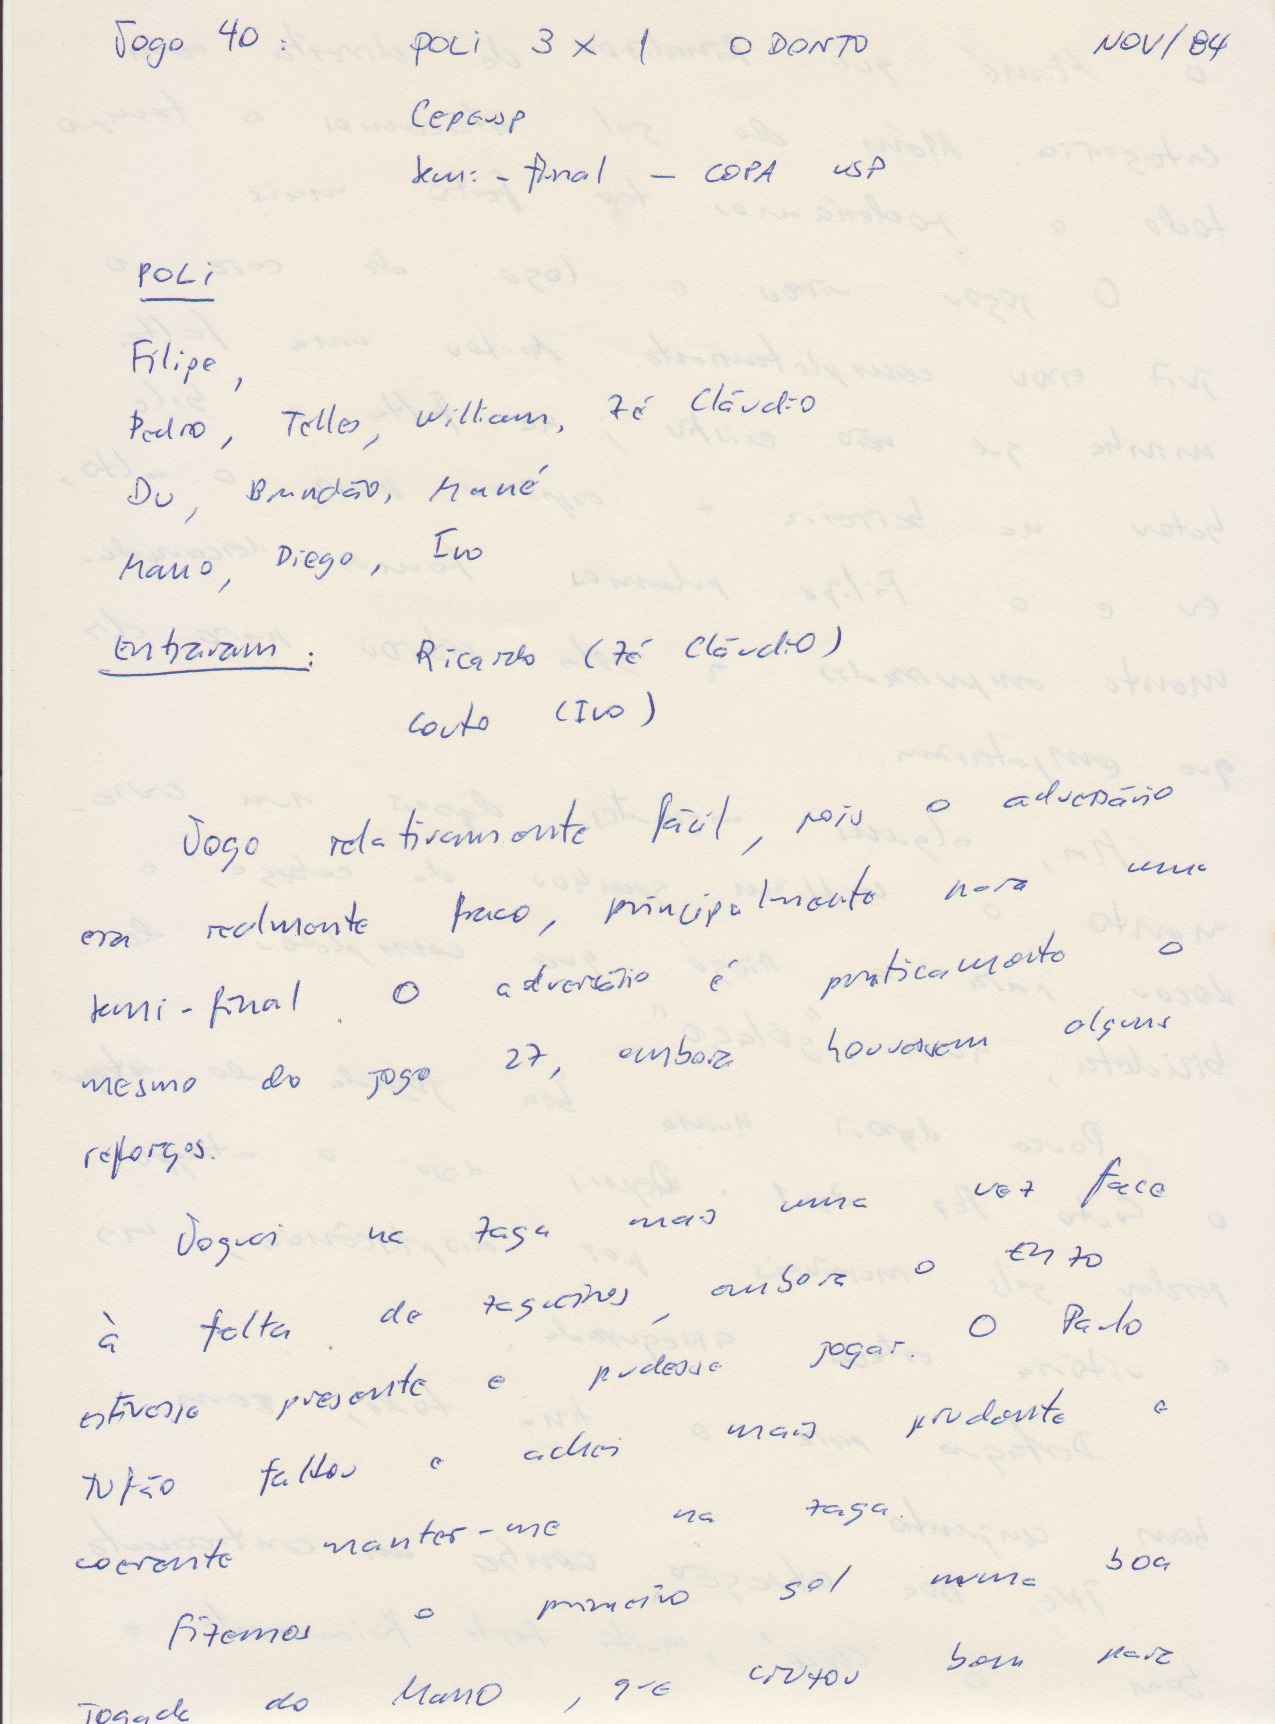 Jogo 40: POLI 3 x 1 ODONTO NOV/84
Cepeusp
semi-final - COPA USP
POLI
Filipe,
Pedro, Telles, William, Zé Cláudio
Du, Brandão, Mané
Mano, Diego, Ivo
Entraram: Ricardo (Zé Cláudio)
Couto (Ivo)
Jogo relativamente fácil, pois o adversário
era realmente fraco, principalmente para uma
semi-final. O adversário é praticamente o
mesmo do jogo 27, embora houvessem alguns
reforços.
Joguei na zaga mais uma vez face
à falta de zagueiros, embora o Enzo
estivesse presente e pudesse jogar. O Paulo
Tufão faltou e achei mais prudente e
coerente manter-me na zaga.
Fizemos o primeiro gol numa boa
jogada do Mano, que cruzou bem para